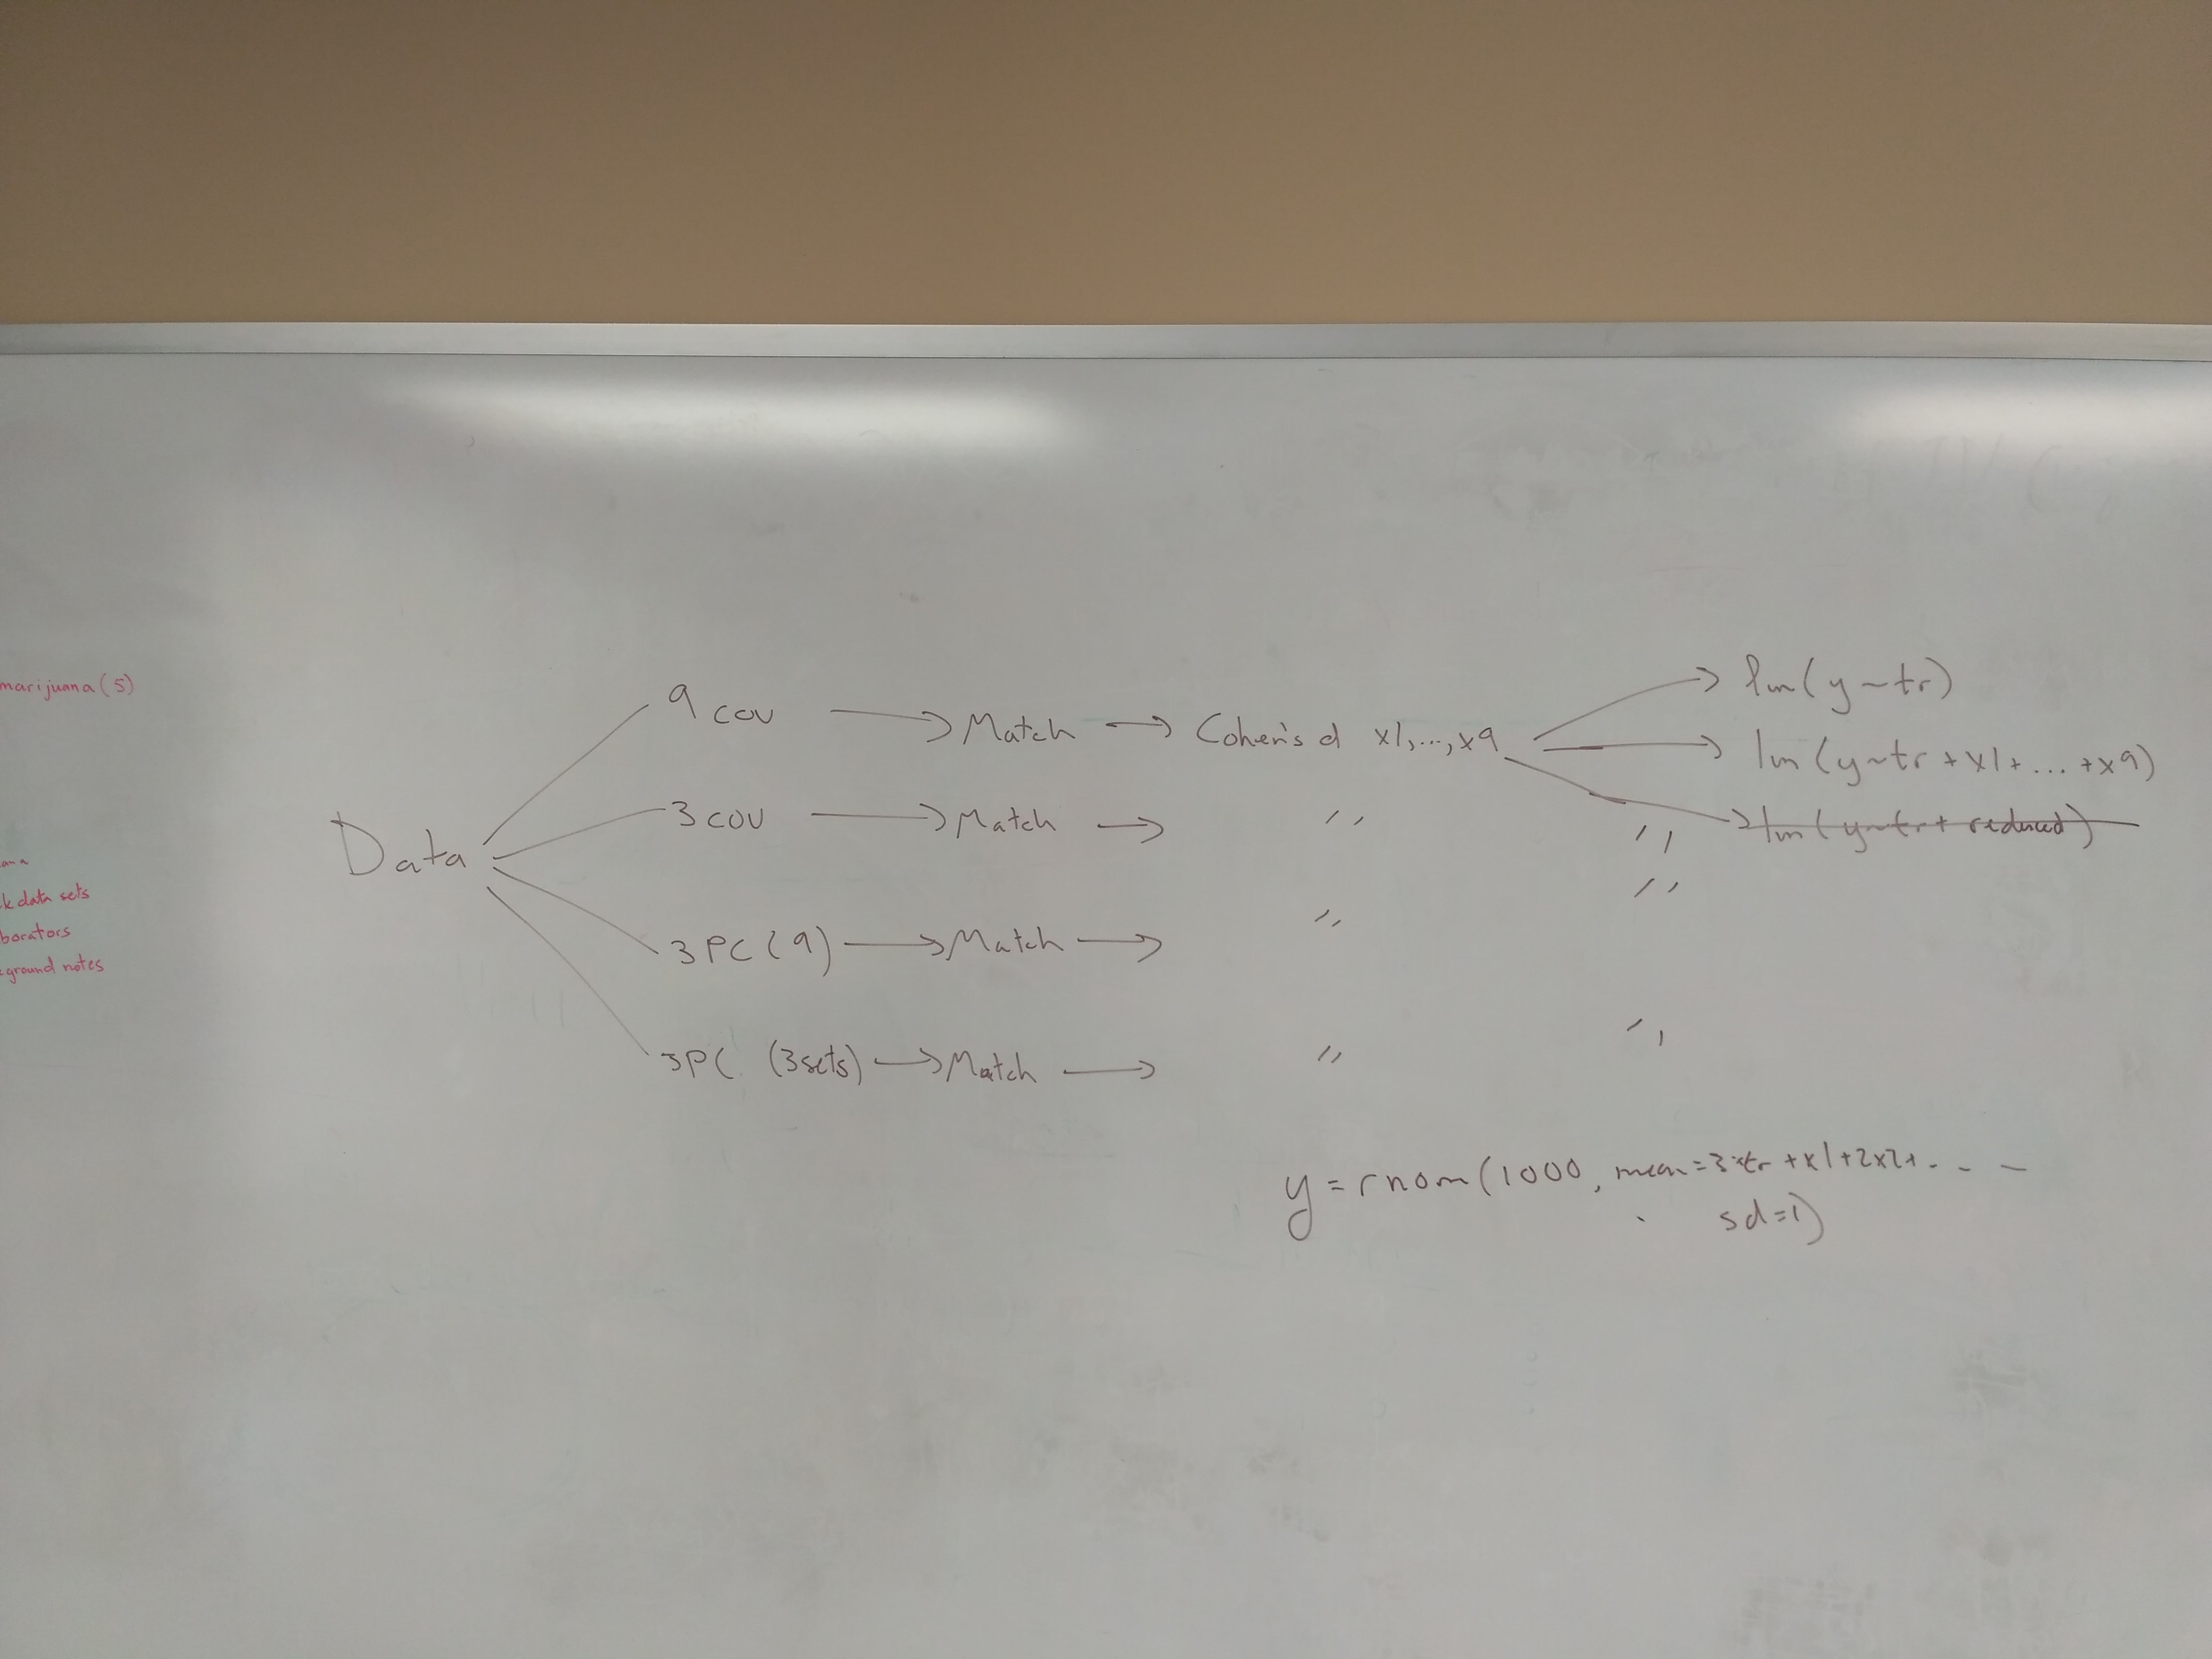 marijuana (5)
k data sets
borators
ground notes
9 cov → Match → Cohen's d x1,...,x9 → lm(y~tr)
→ lm(y~tr+x1+...+x9)
3 cov → Match → " " → lm(y~tr+reduced)
Data
"
3PC (9) → Match → "
3PC (3sets) → Match → " "
y = rnom(1000, mean=3*tr+x1+2x2+...
sd=1)